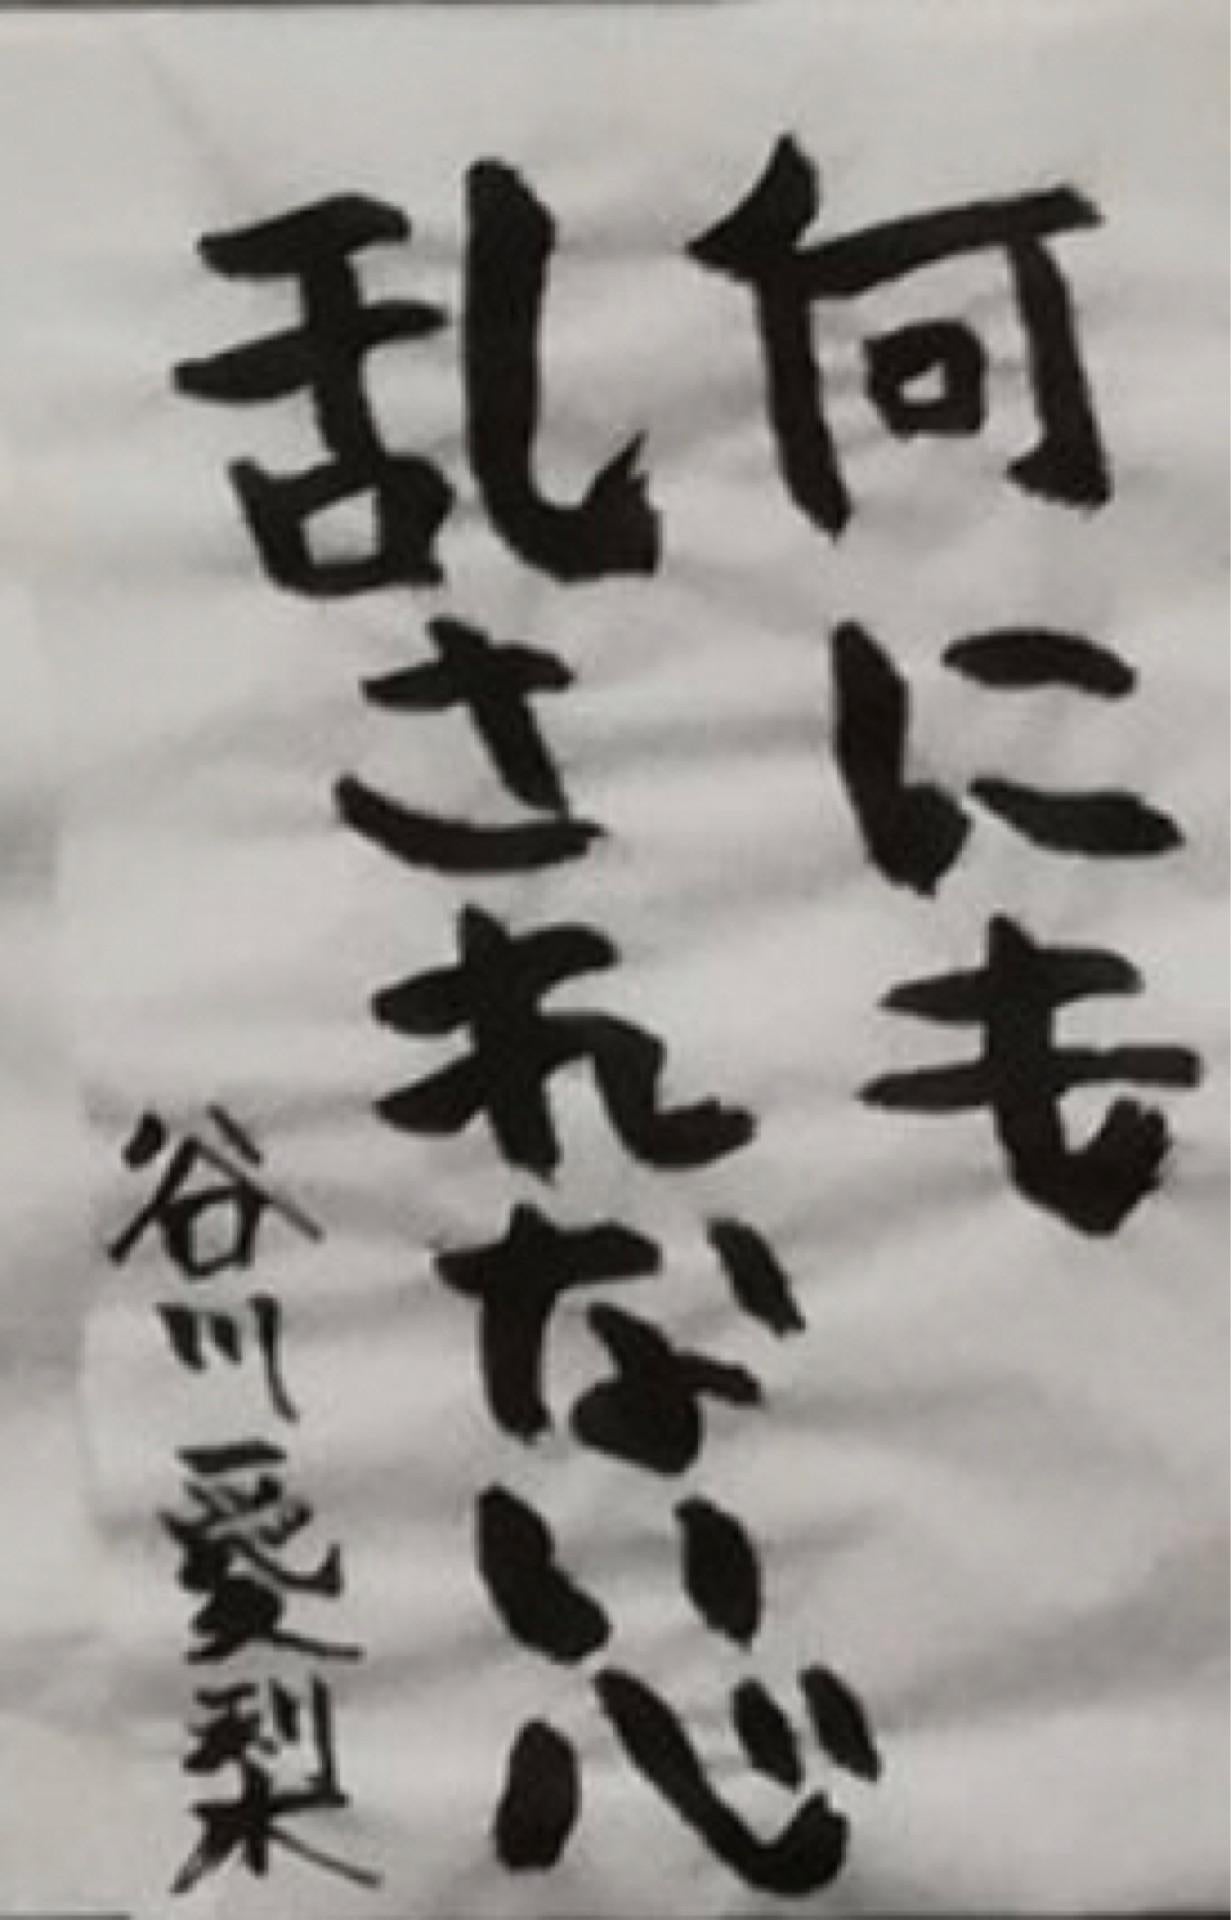 何にも
乱されない心
谷川愛梨